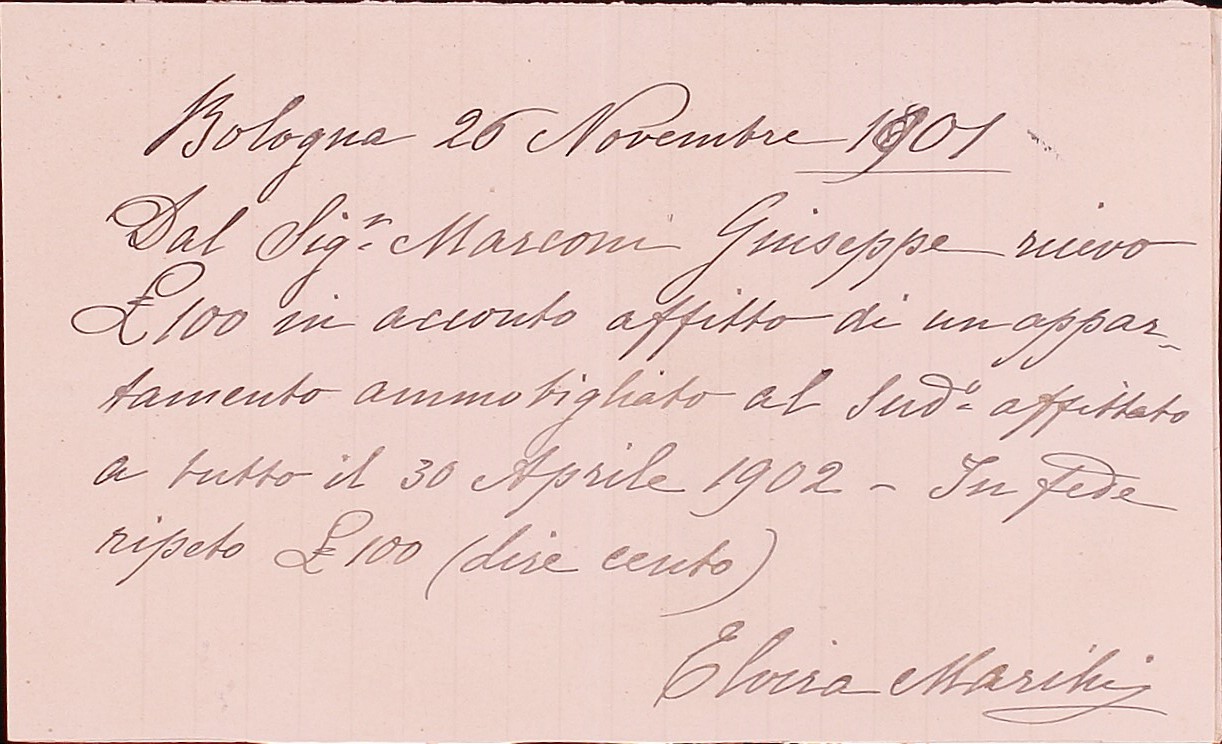 Bologna 26 Novembre 1901
Dal Sigr. Marconi Giuseppe ricevo
£ 100 in acconto affitto di un appar-
tamento ammobigliato al Sudo. affittato
a tutto il 30 Aprile 1902 - In fede
ripeto £ 100 (dire cento)
Elvira